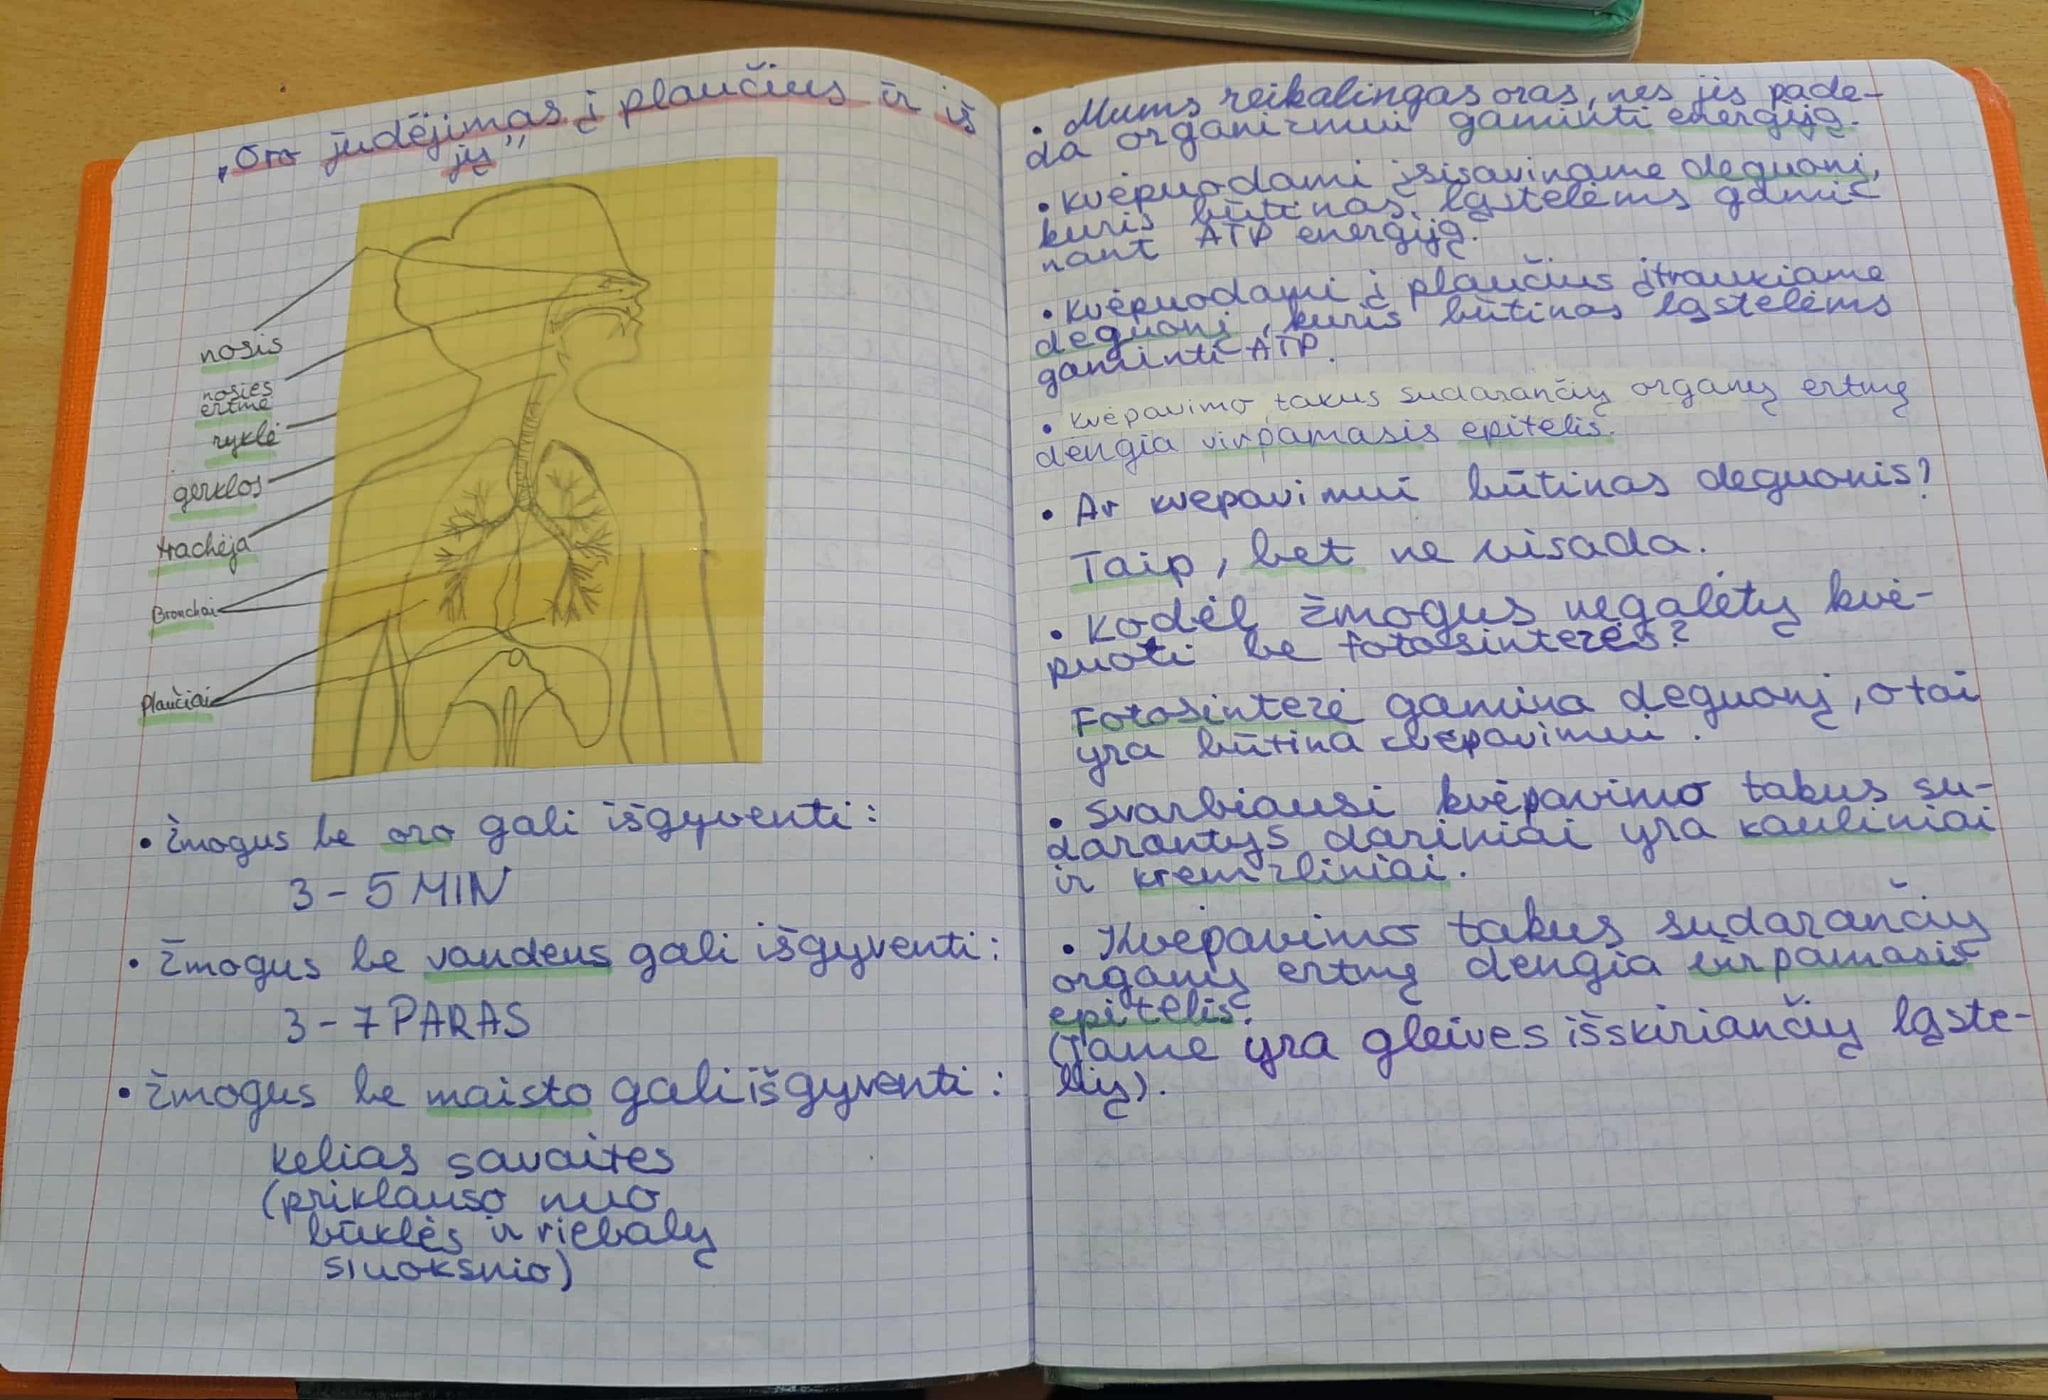 „Oro judėjimas į plaučius ir iš
jų"
nosis
nosies
ertmė
ryklė
gerklos
trachėja
Bronchai
Plaučiai
• Žmogus be oro gali išgyventi:
3-5 MIN
• Žmogus be vandens gali išgyventi:
3-7 PARAS
• Žmogus be maisto gali išgyventi:
kelias savaites
(priklauso nuo
būklės ir riebalų
sluoksnio)
• Mums reikalingas oras, nes jis pade-
da organizmui gaminti energiją.
• Kvėpuodami įsisaviname deguonį,
kuris būtinas ląstelėms gami-
nant ATP energiją.
• Kvėpuodami į plaučius įtraukiame
deguonį, kuris būtinas ląstelėms
gaminti ATP.
• Kvėpavimo takus sudarančių organų ertmę
dengia virpamasis epitelis.
• Ar kvepavimui būtinas deguonis?
Taip, bet ne visada.
• Kodėl žmogus negalėtų kvė-
puoti be fotosintezės?
Fotosintezė gamina deguonį, o tai
yra būtina kvėpavimui.
• Svarbiausi kvėpavimo takus su-
darantys dariniai yra kauliniai
ir kremzliniai.
• Kvėpavimo takus sudarančių
organų ertmę dengia virpamasis
epitelis.
(Jame yra gleives išskiriančių ląste-
lių).